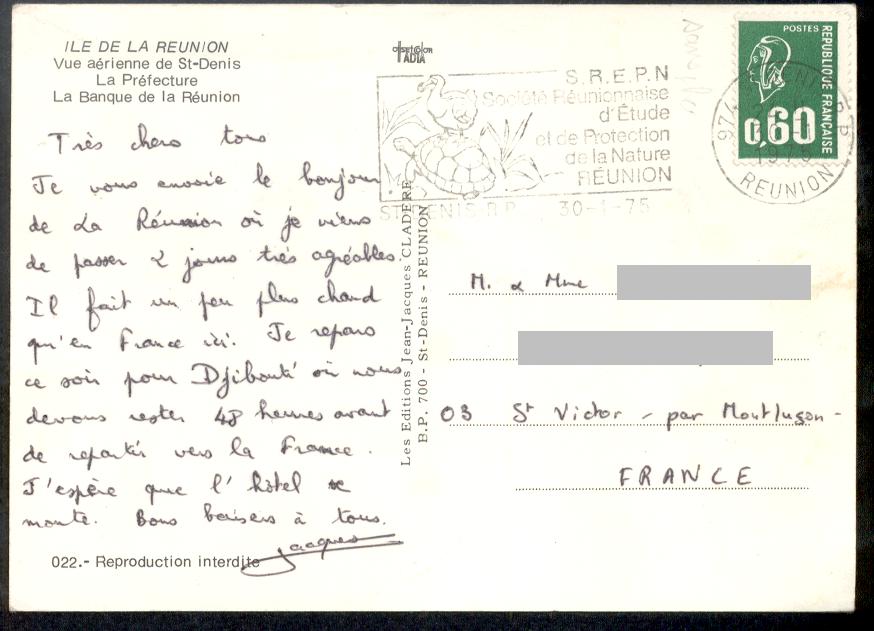 ILE DE LA REUNION
Vue aérienne de St-Denis
La Préfecture
La Banque de la Réunion
Très chers tous
Je vous envoie le bonjour
de La Réunion où je viens
de passer 2 jours très agréables.
Il fait un peu plus chaud
qu'en France ici. Je repars
ce soir pour Djibouti où nous
devons rester 48 heures avant
de repartir vers la France.
J'espère que l'hôtel se
monte. Bons baisers à tous.
Jacques
022.- Reproduction interdite
Les Editions Jean-Jacques CLADERE
B.P. 700 - St-Denis - REUNION
S.R.E.P.N
Société Réunionnaise
d'Étude
et de Protection
de la Nature
RÉUNION
ST DENIS R.P. 30-1-75
POSTES
REPUBLIQUE FRANÇAISE
0,60
974
1975
REUNION
M. & Mme
03 St Victor - par Montluçon -
FRANCE